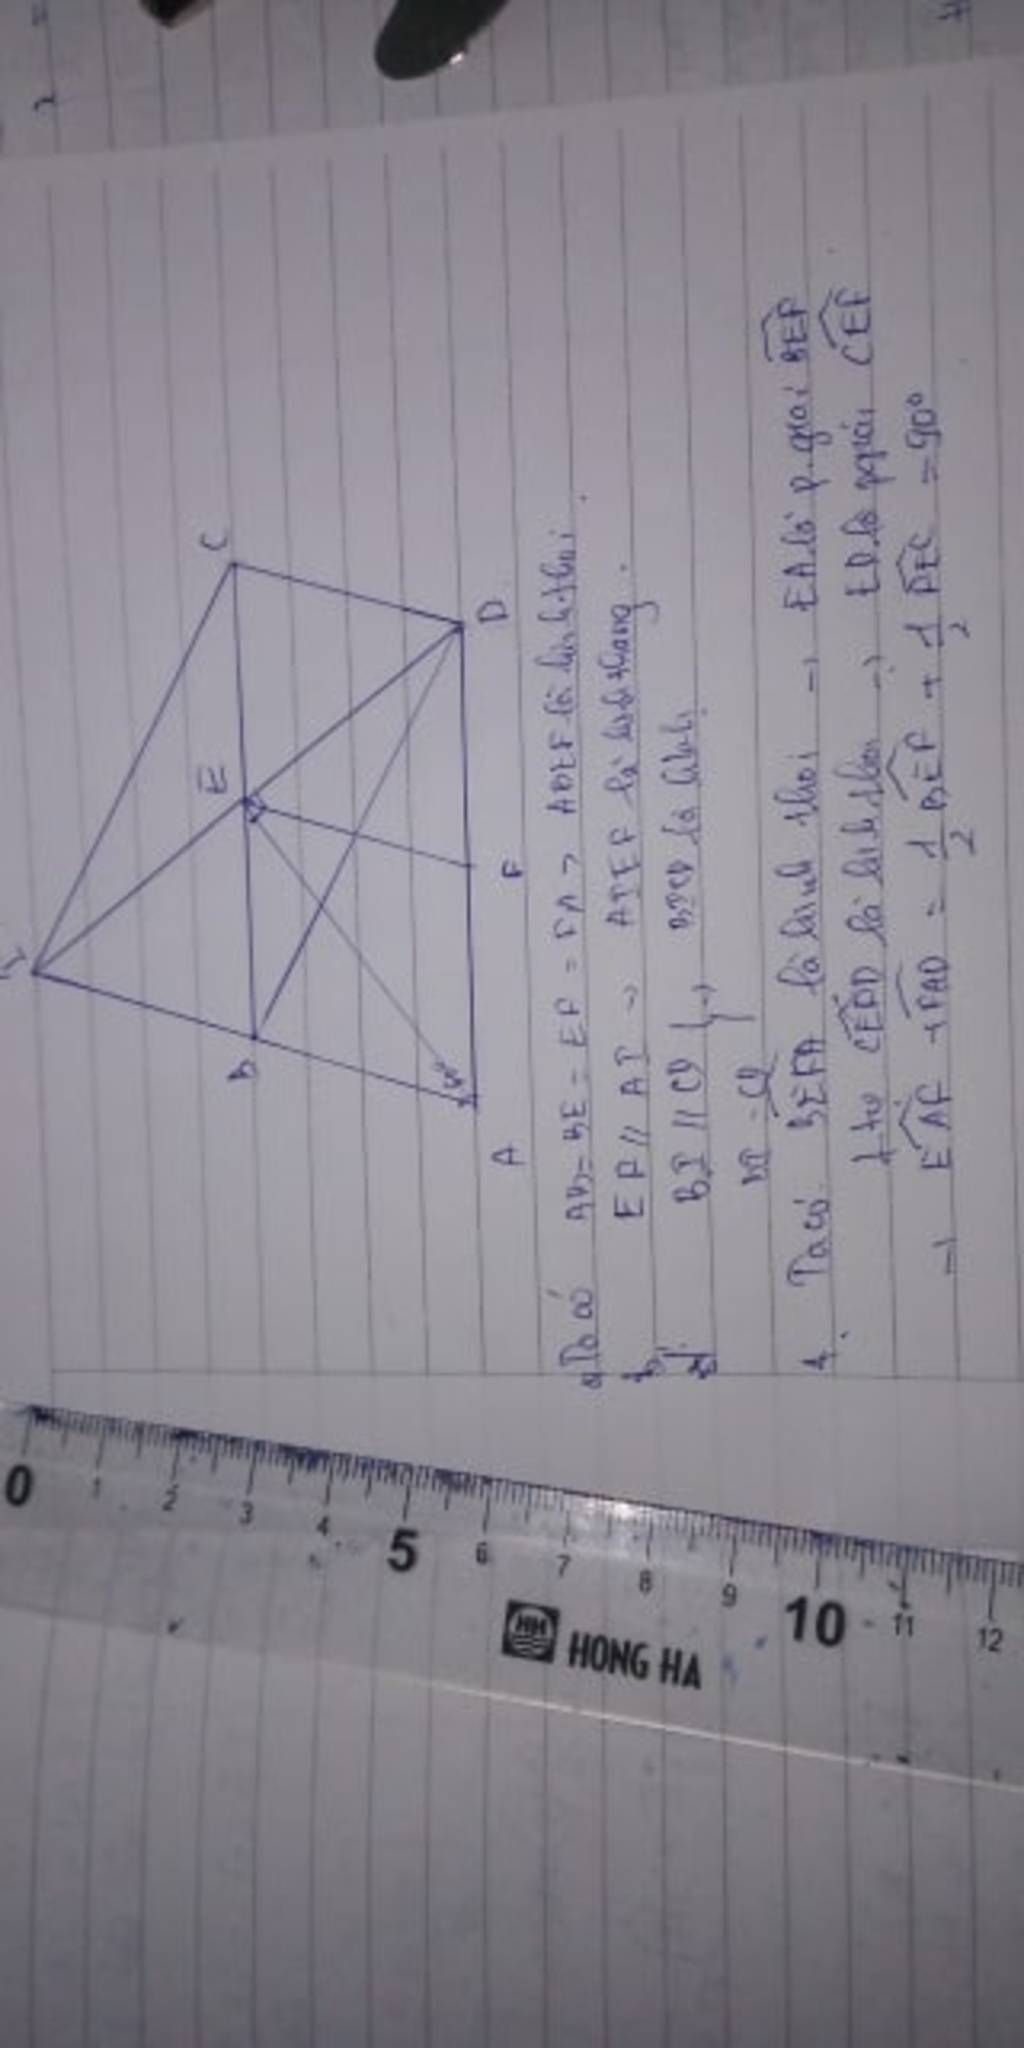 I
B
E
C
A
F
D
a, Ta có AB = BE = EF = FA → ABEF là hình thoi
b, EF // AI → AIEF là hình thang.
BI // CD } → BICD là hbh
BI = CD
4. Ta có BEFA là hình thoi → EA là p.giác BEF
CEFD là hình thoi → ED là pgiác CEF
→ = 1/2 BEF + 1/2 FEC = 90°
0 1 2 3 4 5 6 7 8 9 10 11 12
HH HONG HA